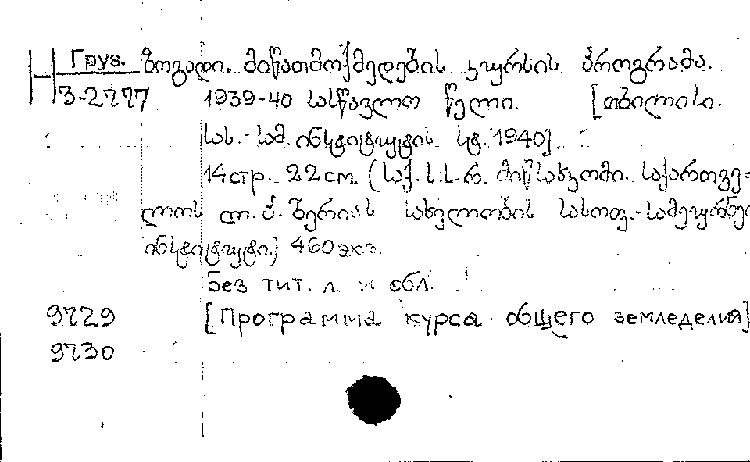 Груз. ზოგადი. მიწათმოქმედების კურსის პროგრამა.
3-2777 1939-40 სასწავლო წელი. [თბილისი.
სას.-სამ. ინსტიტუტის სტ. 1940]
14стр. 22см. (საქ. ს.ს.რ. მიწსახკომი. საქართვე-
ლოს ლ. პ. ბერიას სახელობის სასოფ.-სამეურნეო
ინსტიტუტი.) 460экз.
Без тит. л. и обл.
9729 [Программа курса общего земледелия]
9730